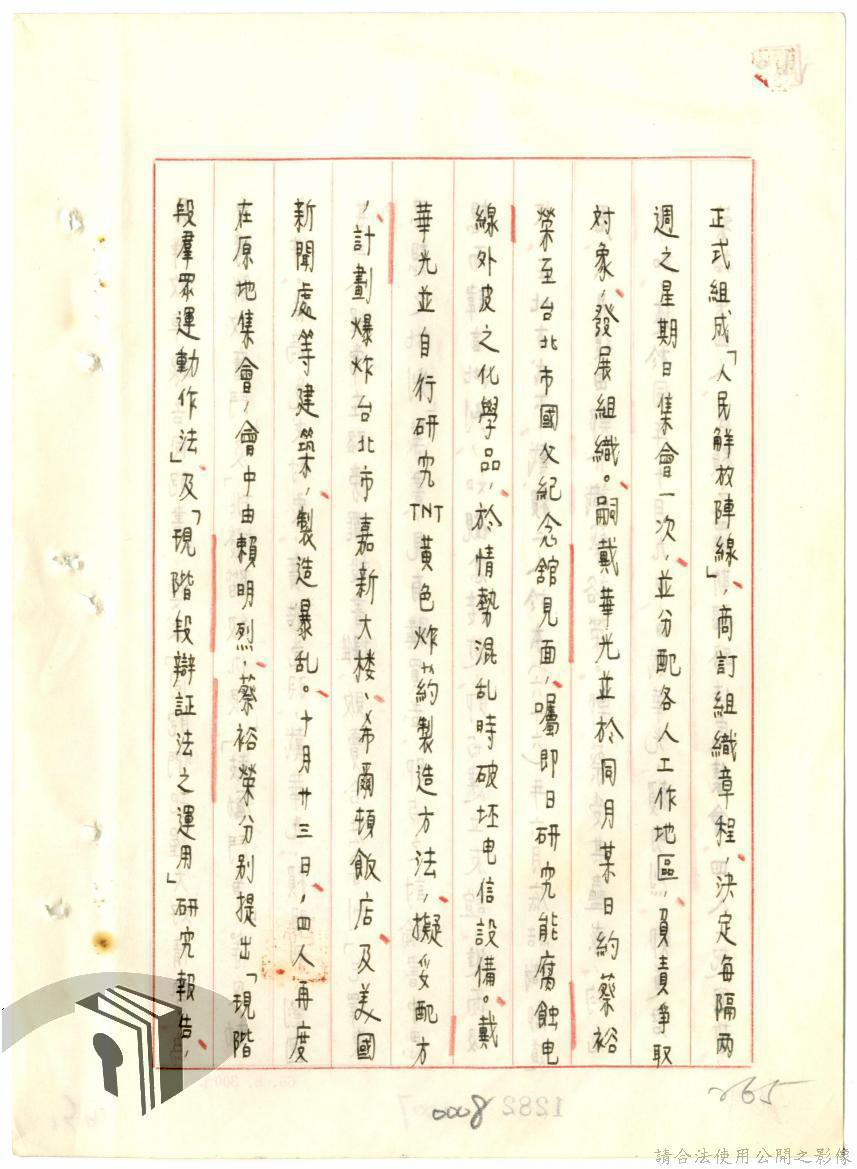 正式組成「人民解放陣線」，商訂組織章程，決定每隔兩
週之星期日集會一次，並分配各人工作地區，負責爭取
対象，發展組織。嗣戴華光並於同月某日約蔡裕
榮至台北市國父紀念舘見面，囑即日研究能腐蝕电
線外皮之化學品，於情勢混乱時破坯电信設備。戴
華光並自行研究TNT黄色炸葯製造方法，擬妥配方
，計劃爆炸台北市嘉新大楼、希爾頓飯店及美國
新聞處等建築，製造暴乱。十月廿三日，四人再度
在原地集會，會中由賴明烈，蔡裕榮分别提出「現階
段羣眾運動作法」及「現階段辯証法之運用」研究報告，
265
0008
1282
請合法使用公開之影像